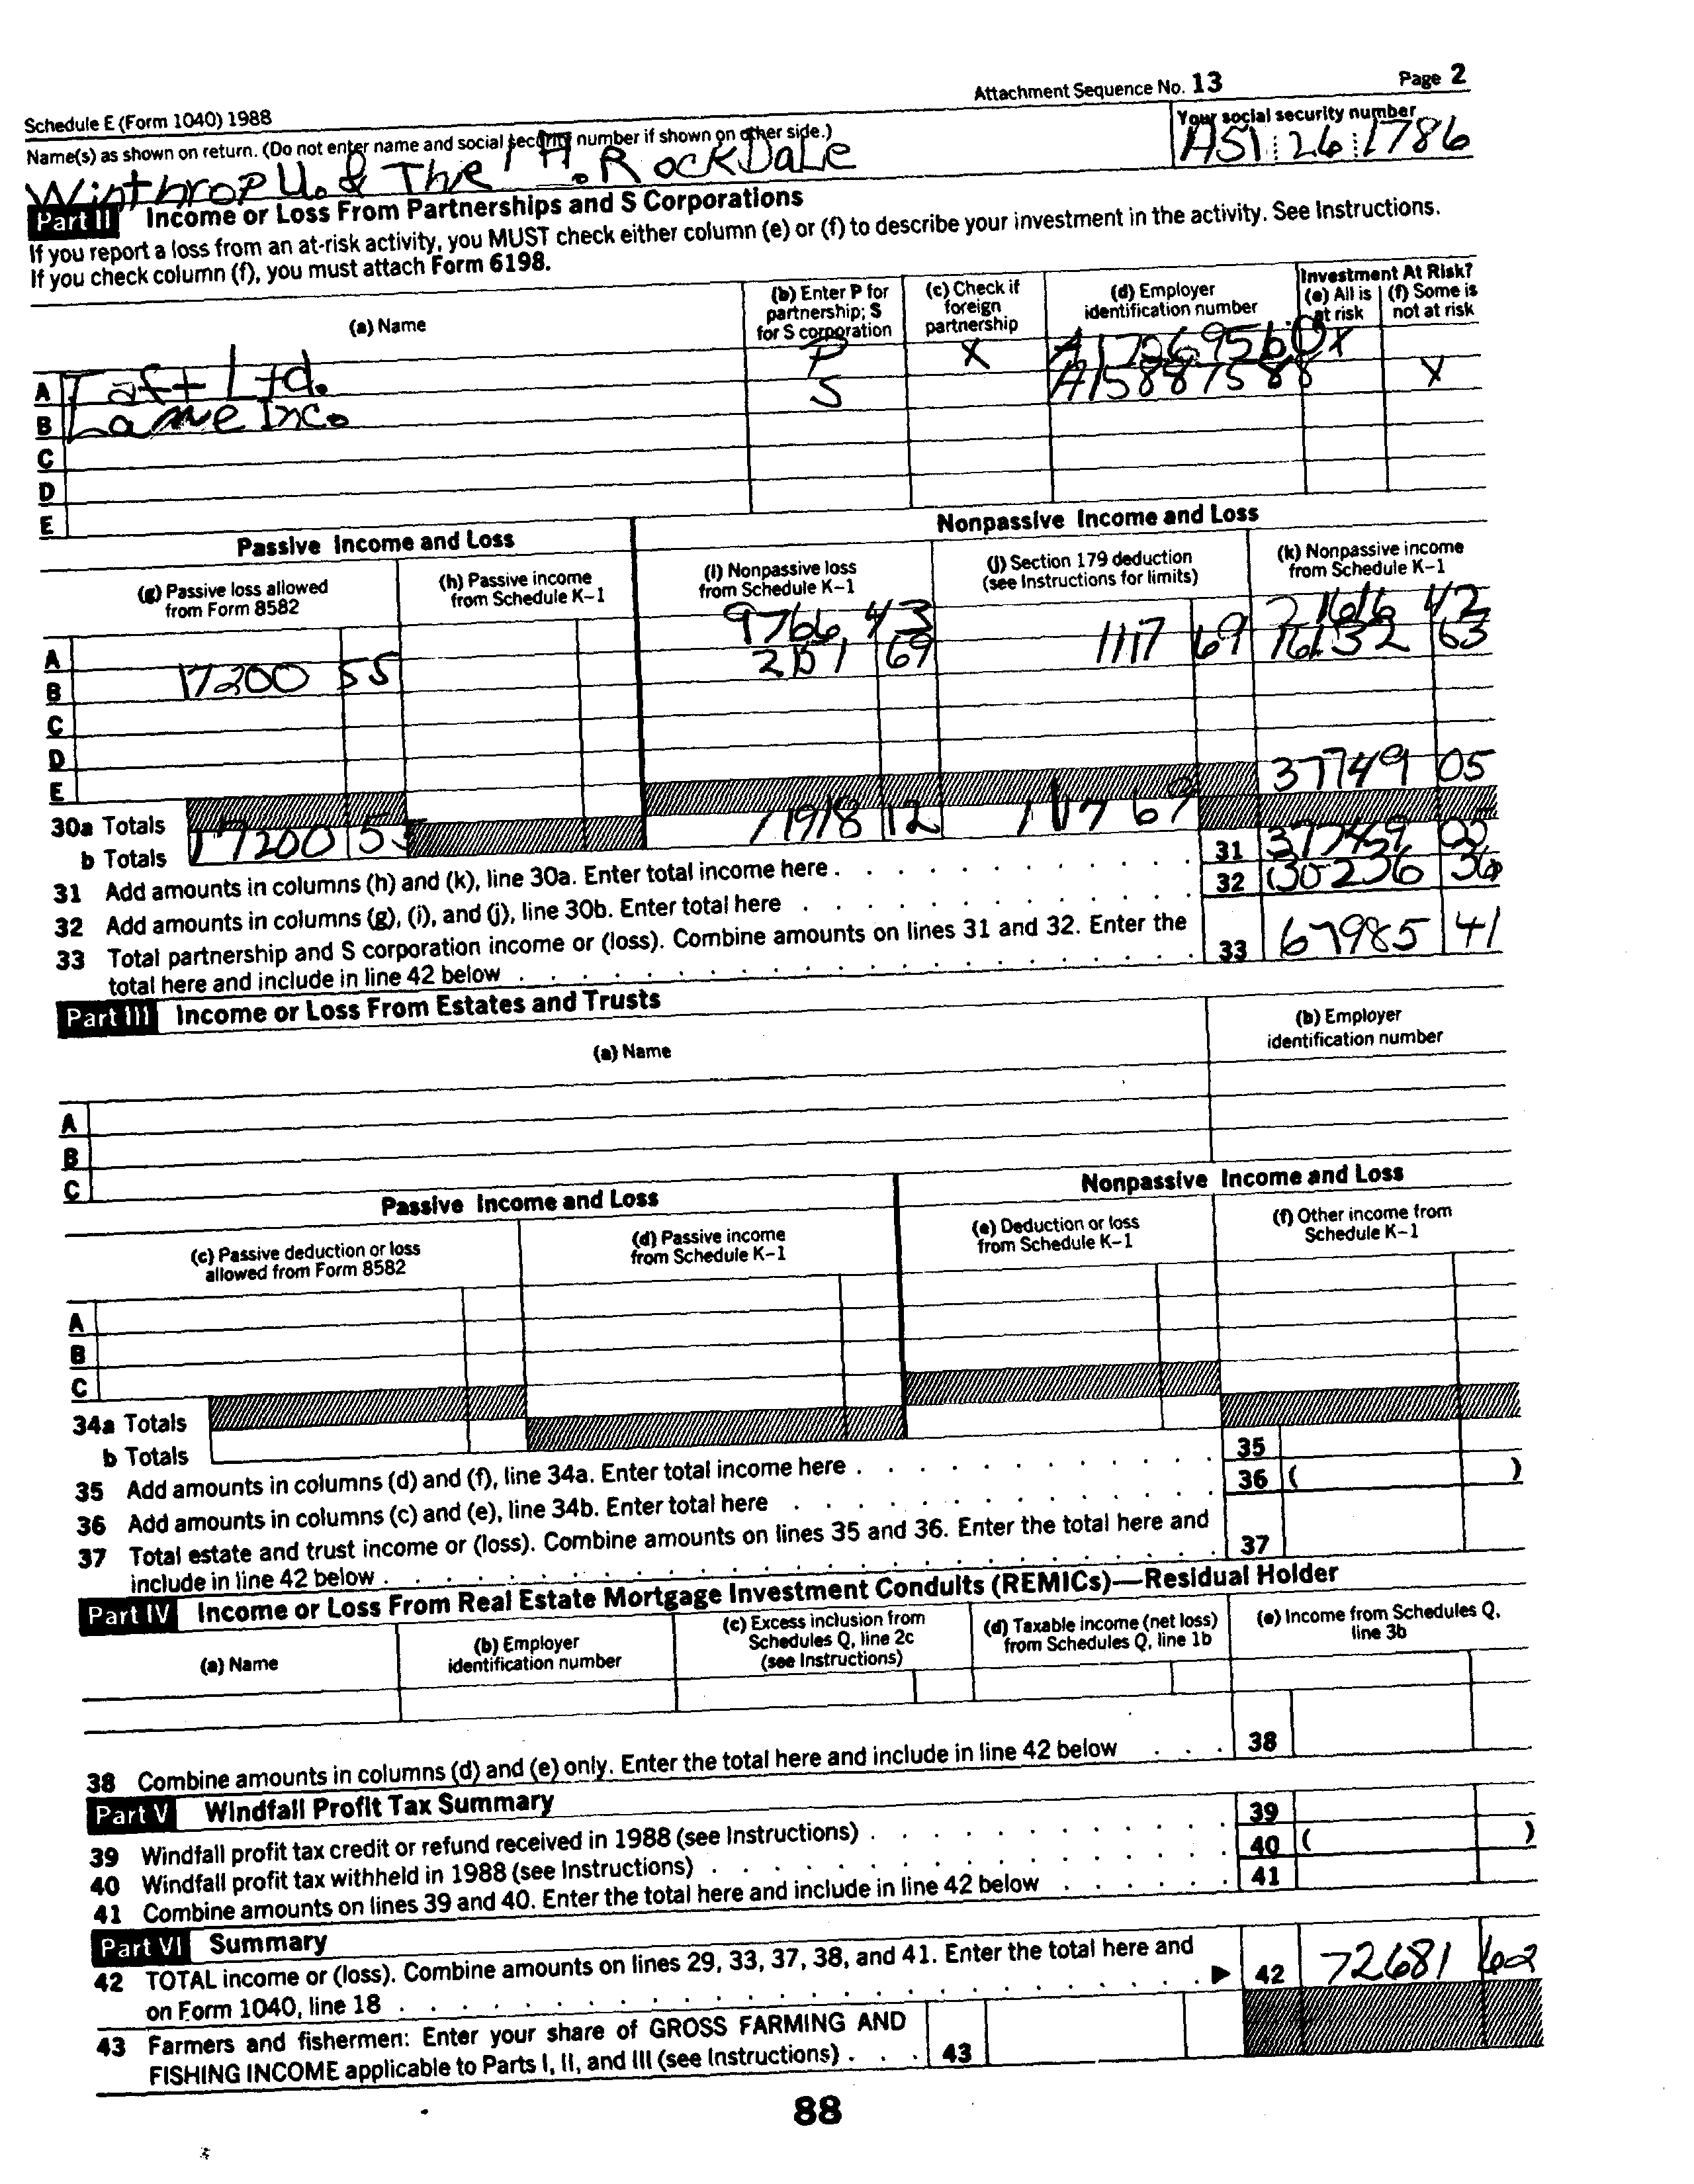 Attachment Sequence No. 13 Page 2
Schedule E (Form 1040) 1988
Name(s) as shown on return. (Do not enter name and social security number if shown on other side.) Your social security number
Winthrop U. & The H. RockDaLe A51 26 1786
Part II Income or Loss From Partnerships and S Corporations
If you report a loss from an at-risk activity, you MUST check either column (e) or (f) to describe your investment in the activity. See Instructions.
If you check column (f), you must attach Form 6198.
(a) Name (b) Enter P for partnership; S for S corporation (c) Check if foreign partnership (d) Employer identification number Investment At Risk? (e) All is at risk (f) Some is not at risk
A Taft Ltd. P X A17269560 X
B S A15887588 X
C
D
E
Passive Income and Loss Nonpassive Income and Loss
(g) Passive loss allowed from Form 8582 (h) Passive income from Schedule K-1 (i) Nonpassive loss from Schedule K-1 (j) Section 179 deduction (see Instructions for limits) (k) Nonpassive income from Schedule K-1
A 9766 43 21616 42
B 17200 55 69 1117 69 16132 63
C
D
E
30a Totals 37749 05
b Totals 17200 55 11918 12 1117 69
31 Add amounts in columns (h) and (k), line 30a. Enter total income here . 31 37749 05
32 Add amounts in columns (g), (i), and (j), line 30b. Enter total here . 32 (30236 36
33 Total partnership and S corporation income or (loss). Combine amounts on lines 31 and 32. Enter the
total here and include in line 42 below . 33 67985 41
Part III Income or Loss From Estates and Trusts
(a) Name (b) Employer identification number
A
B
C
Passive Income and Loss Nonpassive Income and Loss
(c) Passive deduction or loss allowed from Form 8582 (d) Passive income from Schedule K-1 (e) Deduction or loss from Schedule K-1 (f) Other income from Schedule K-1
A
B
C
34a Totals
b Totals
35 Add amounts in columns (d) and (f), line 34a. Enter total income here . 35
36 Add amounts in columns (c) and (e), line 34b. Enter total here . 36 ( )
37 Total estate and trust income or (loss). Combine amounts on lines 35 and 36. Enter the total here and
include in line 42 below . 37
Part IV Income or Loss From Real Estate Mortgage Investment Conduits (REMICs)—Residual Holder
(a) Name (b) Employer identification number (c) Excess inclusion from Schedules Q, line 2c (see Instructions) (d) Taxable income (net loss) from Schedules Q, line 1b (e) Income from Schedules Q, line 3b
38 Combine amounts in columns (d) and (e) only. Enter the total here and include in line 42 below . 38
Part V Windfall Profit Tax Summary
39 Windfall profit tax credit or refund received in 1988 (see Instructions) . 39
40 Windfall profit tax withheld in 1988 (see Instructions) . 40 ( )
41 Combine amounts on lines 39 and 40. Enter the total here and include in line 42 below . 41
Part VI Summary
42 TOTAL income or (loss). Combine amounts on lines 29, 33, 37, 38, and 41. Enter the total here and
on Form 1040, line 18 . ▶ 42 72681 62
43 Farmers and fishermen: Enter your share of GROSS FARMING AND
FISHING INCOME applicable to Parts I, II, and III (see Instructions) . 43
88